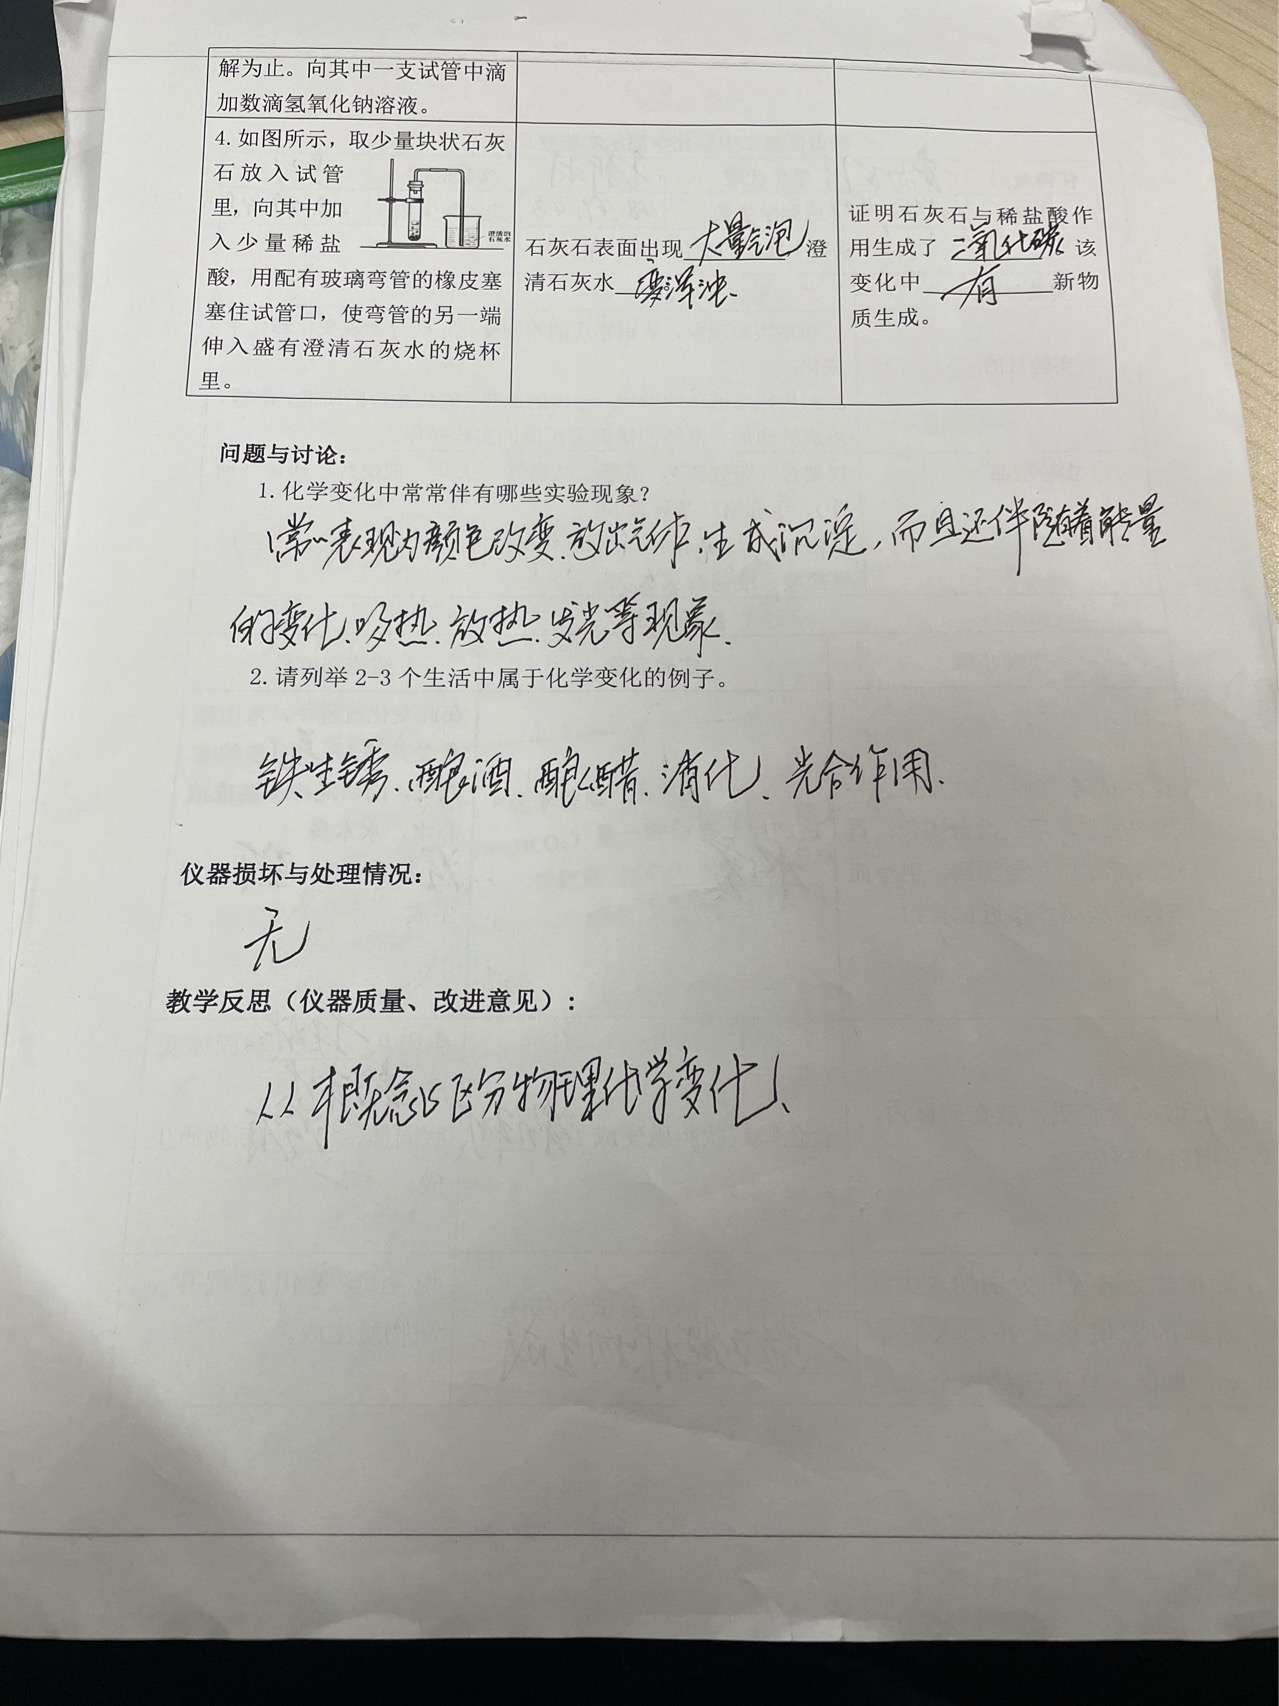 解为止。向其中一支试管中滴
加数滴氢氧化钠溶液。
4.如图所示，取少量块状石灰
石放入试管
里，向其中加
入少量稀盐
酸，用配有玻璃弯管的橡皮塞
塞住试管口，使弯管的另一端
伸入盛有澄清石灰水的烧杯
里。
澄清的
石灰水
石灰石表面出现 大量气泡 澄
清石灰水 变浑浊、
证明石灰石与稀盐酸作
用生成了 二氧化碳 该
变化中 有 新物
质生成。
问题与讨论：
1.化学变化中常常伴有哪些实验现象？
常表现为颜色改变、放出气体、生成沉淀，而且还伴随着能量
的变化、吸热、放热、发光等现象、
2.请列举 2-3 个生活中属于化学变化的例子。
铁生锈、酿酒、酿醋、消化、光合作用、
仪器损坏与处理情况：
无
教学反思（仪器质量、改进意见）：
从概念区分物理化学变化、